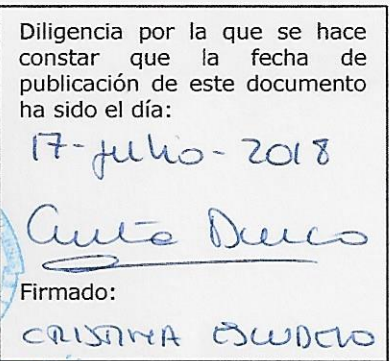 Diligencia por la que se hace
constar que la fecha de
publicación de este documento
ha sido el día:
17-julio-2018
Firmado:
CRISTINA ESCUDERO